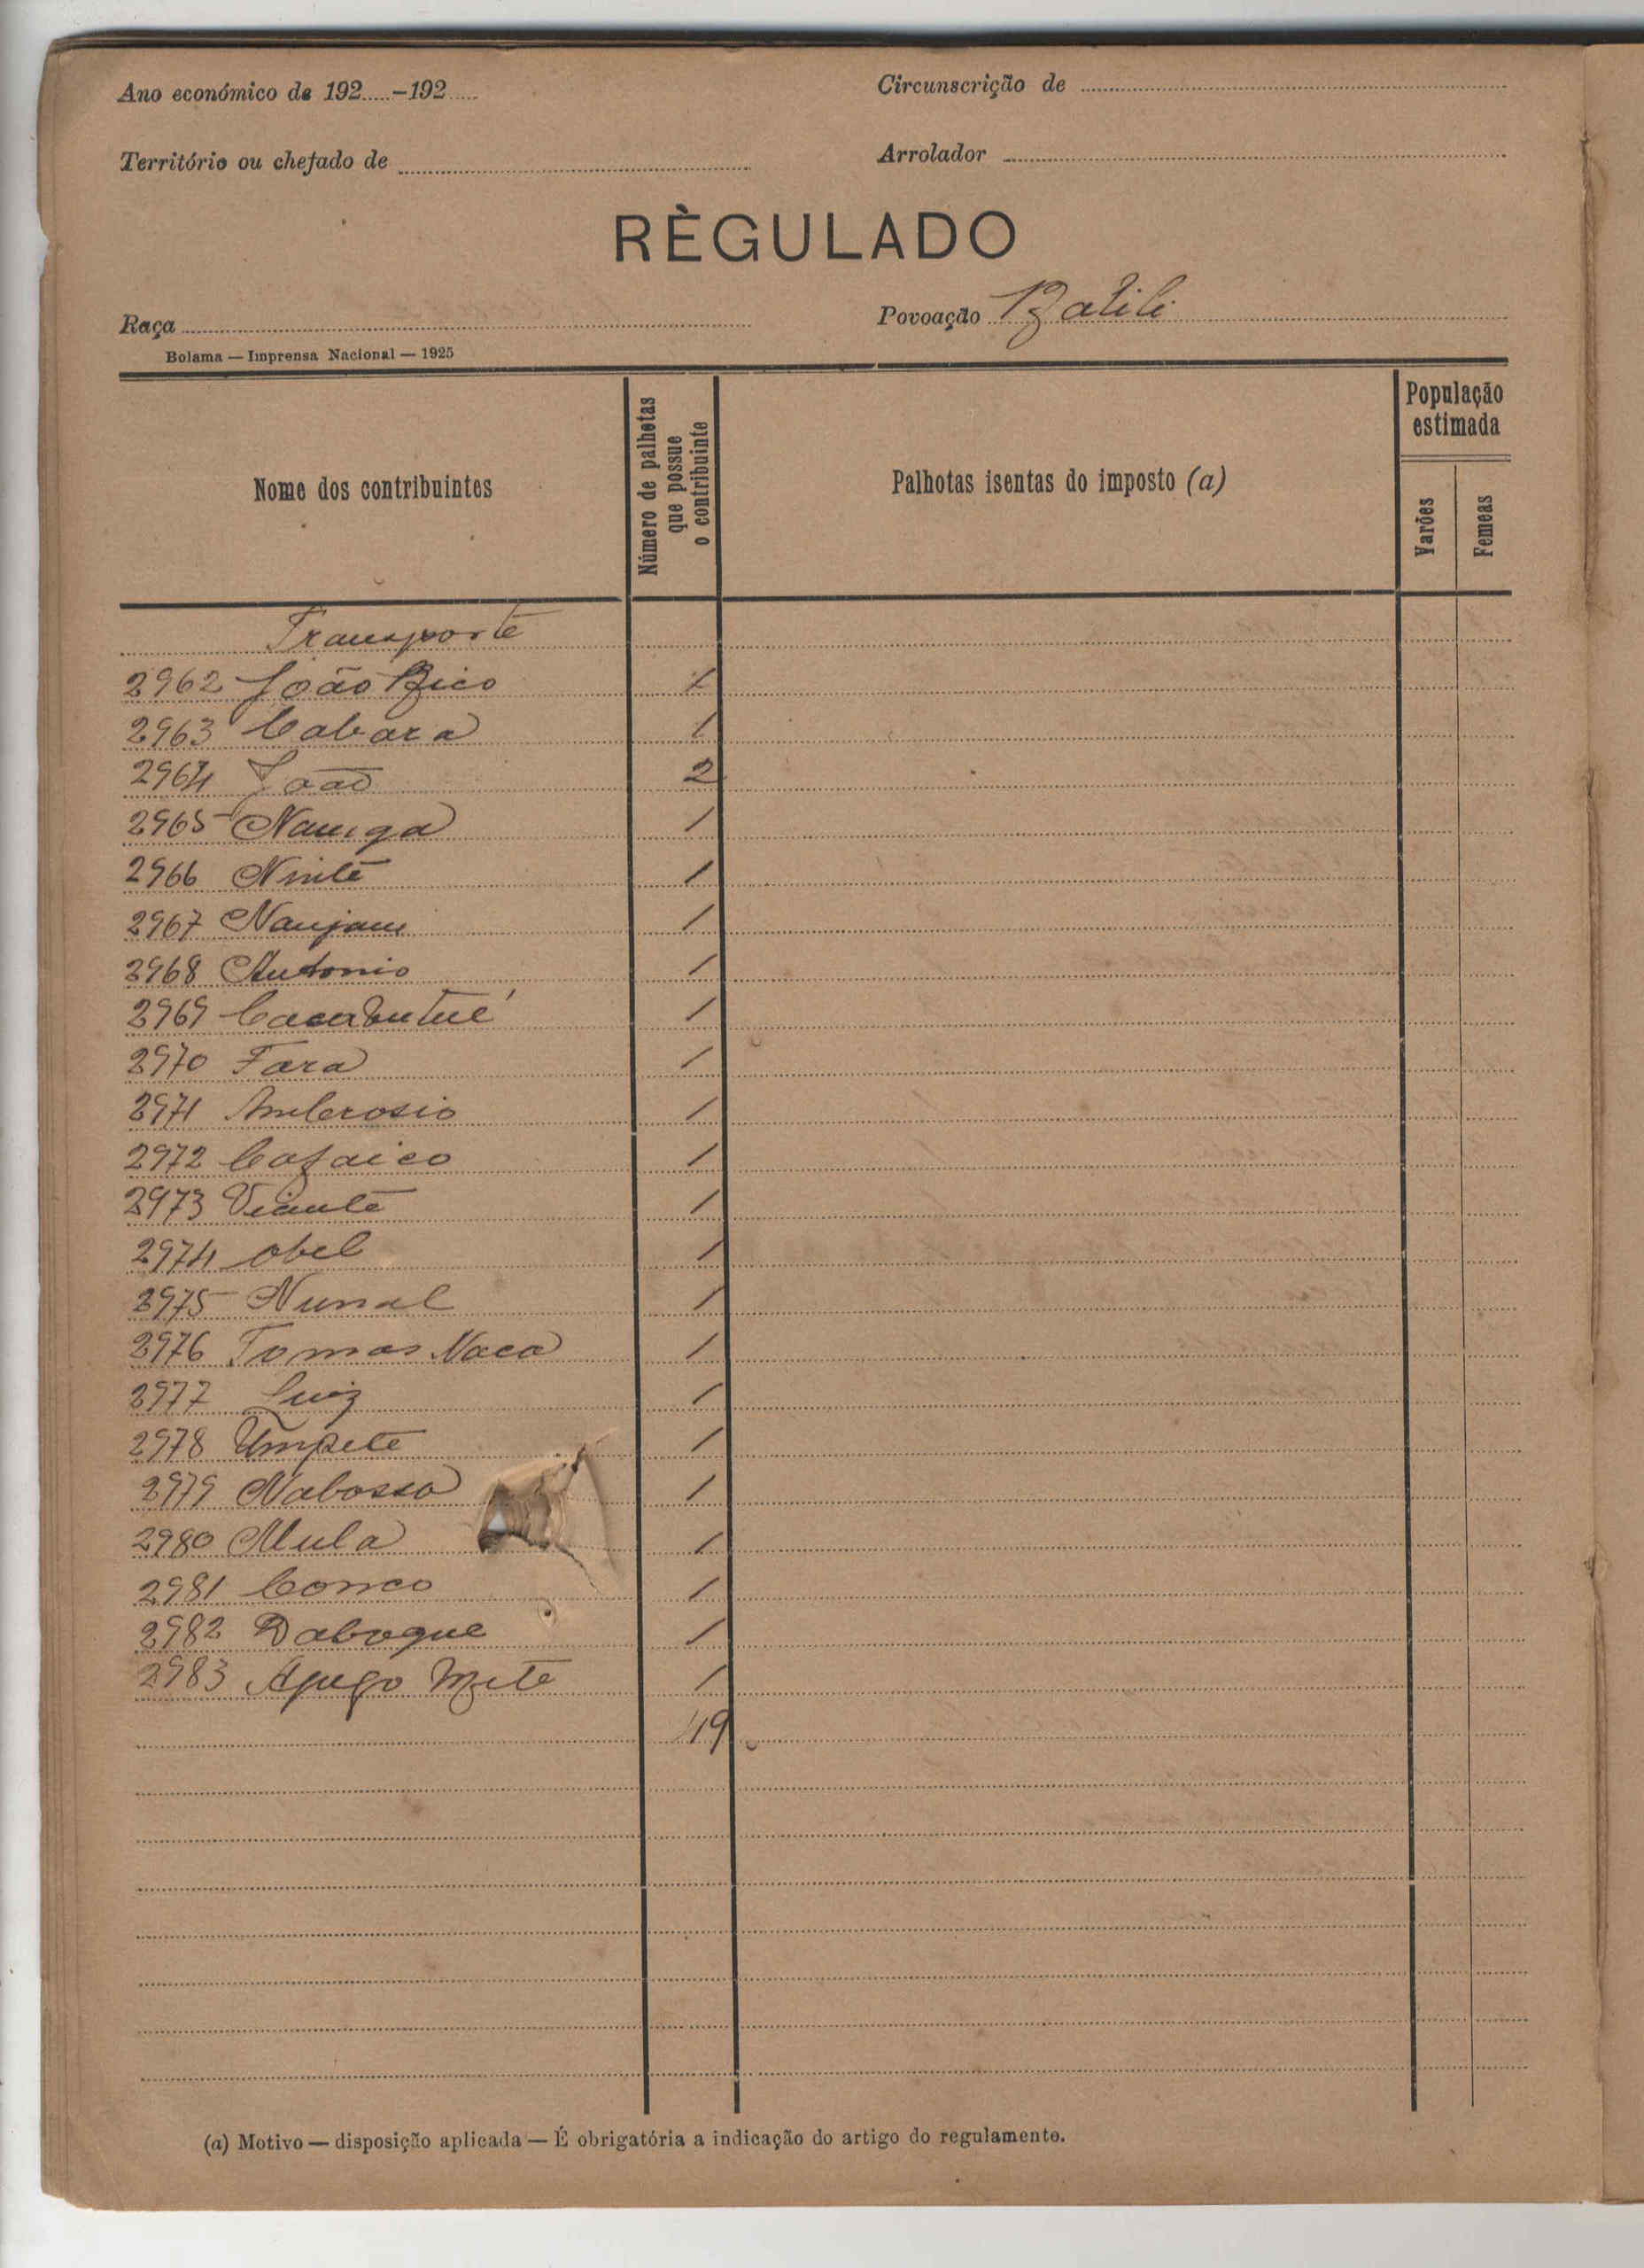 Ano económico de 192.....-192.....
Circunscrição de
Território ou chefado de
Arrolador
RÈGULADO
Raça
Povoação Batili
Bolama — Imprensa Nacional — 1925
Nome dos contribuintes
Número de palhotas que possue o contribuinte
Palhotas isentas do imposto (a)
População estimada
Varões
Femeas
Transporte
2962 João Bico 1
2963 Cabara 1
2964 João 2
2965 Naniga 1
2966 Ninte 1
2967 Nanjam 1
2968 Antonio 1
2969 1
2970 Fara 1
2971 Ambrosio 1
2972 Cafaico 1
2973 Viante 1
2974 Abel 1
2975 Nunal 1
2976 Tomas Naca 1
2977 Luiz 1
2978 Umpete 1
2979 Nabossa 1
2980 Mula 1
2981 Conco 1
2982 Daboque 1
2983 1
(a) Motivo — disposição aplicada — É obrigatória a indicação do artigo do regulamento.